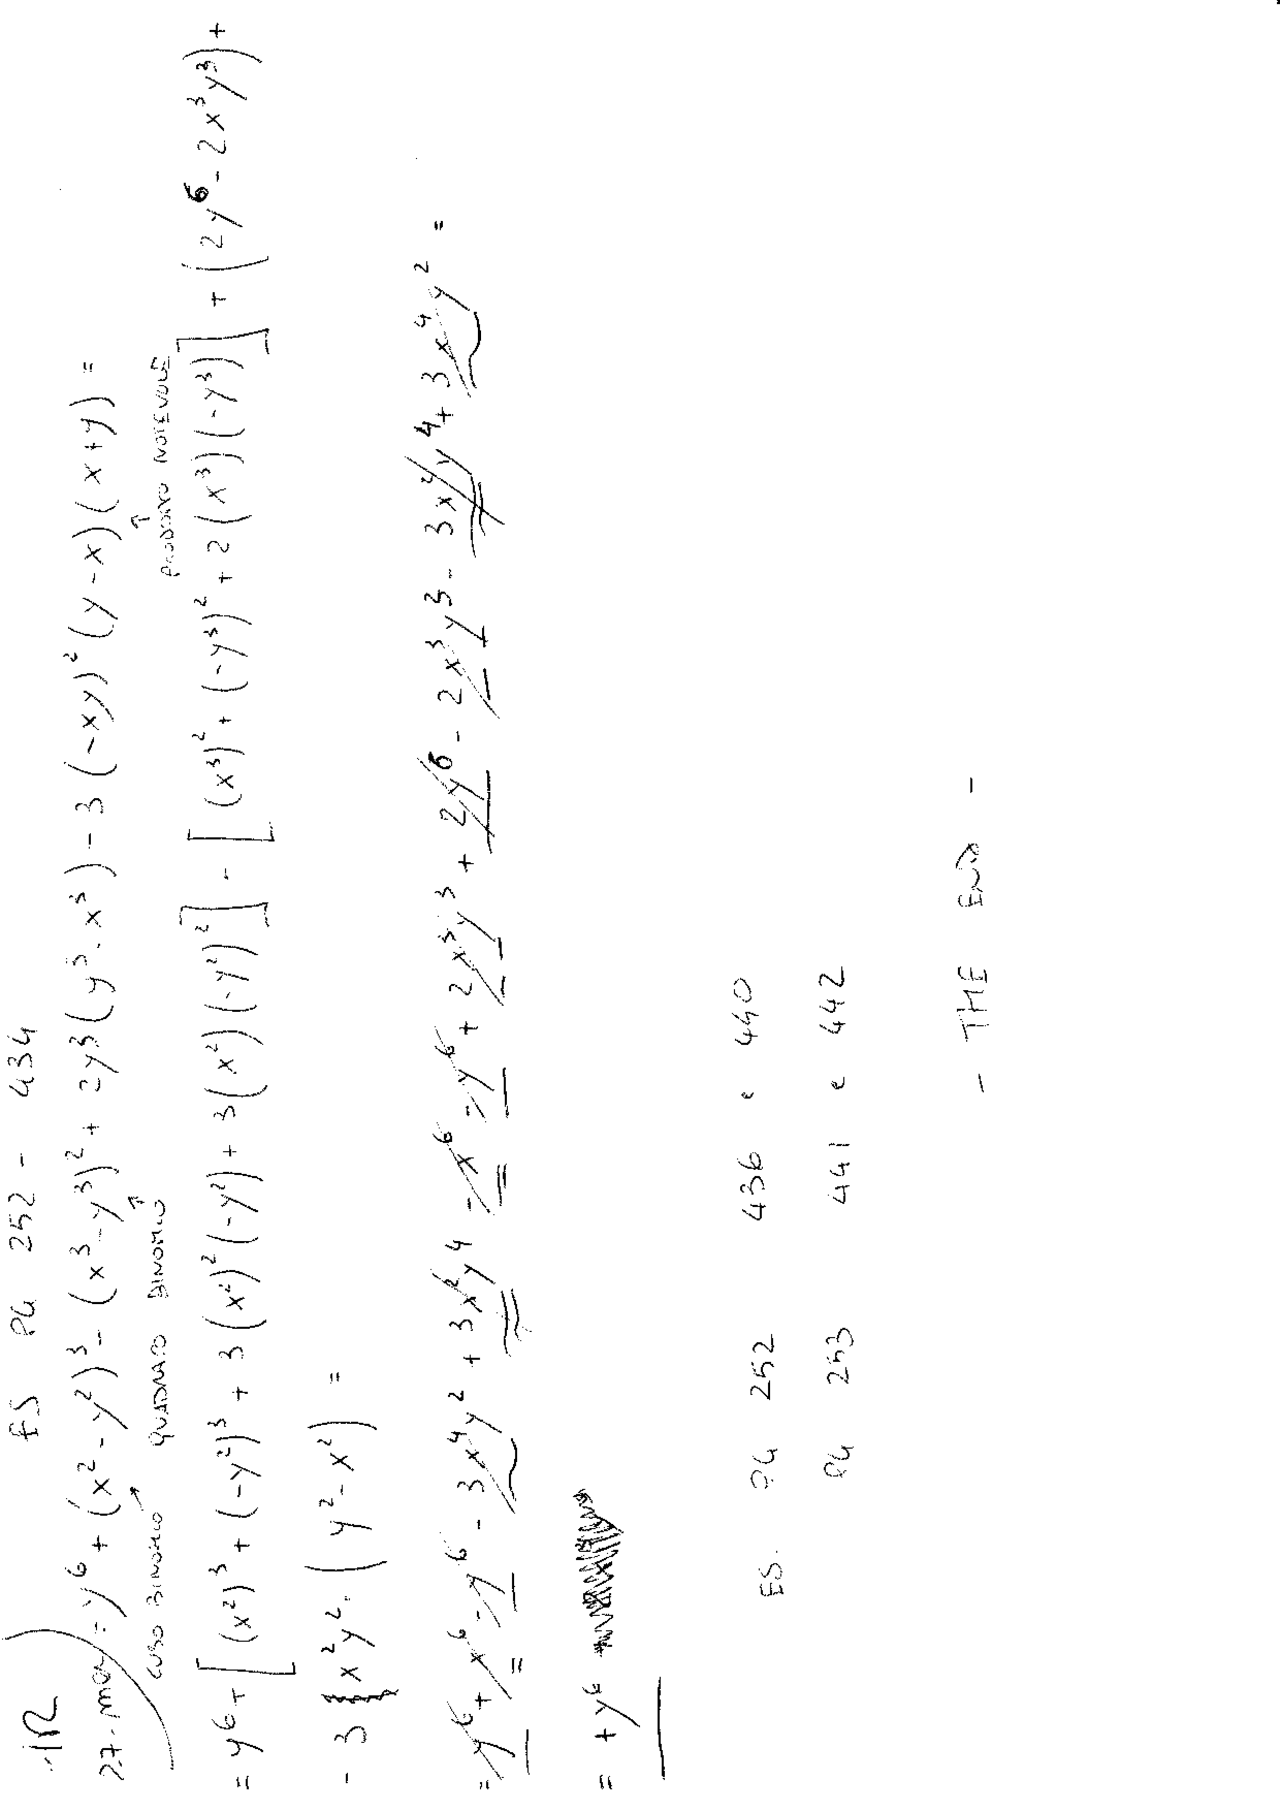 ES PG 252 - 434
= y⁶ + (x² - y²)³ - (x³ - y³)² + 2y³(y³ - x³) - 3(-xy)²(y - x)(x + y) =
CUBO BINOMIO QUADRATO BINOMIO PRODOTTO NOTEVOLE
= y⁶ + [(x²)³ + (-y²)³ + 3(x²)²(-y²) + 3(x²)(-y²)²] - [(x³)² + (-y³)² + 2(x³)(-y³)] + (2y⁶ - 2x³y³) +
- 3 x²y² · (y² - x²) =
= y⁶ + x⁶ - y⁶ - 3x⁴y² + 3x²y⁴ - x⁶ - y⁶ + 2x³y³ + 2y⁶ - 2x³y³ - 3x²y⁴ + 3x⁴y² =
= + y⁶
ES. PG 252 436 e 440
PG 253 441 e 442
- THE END -